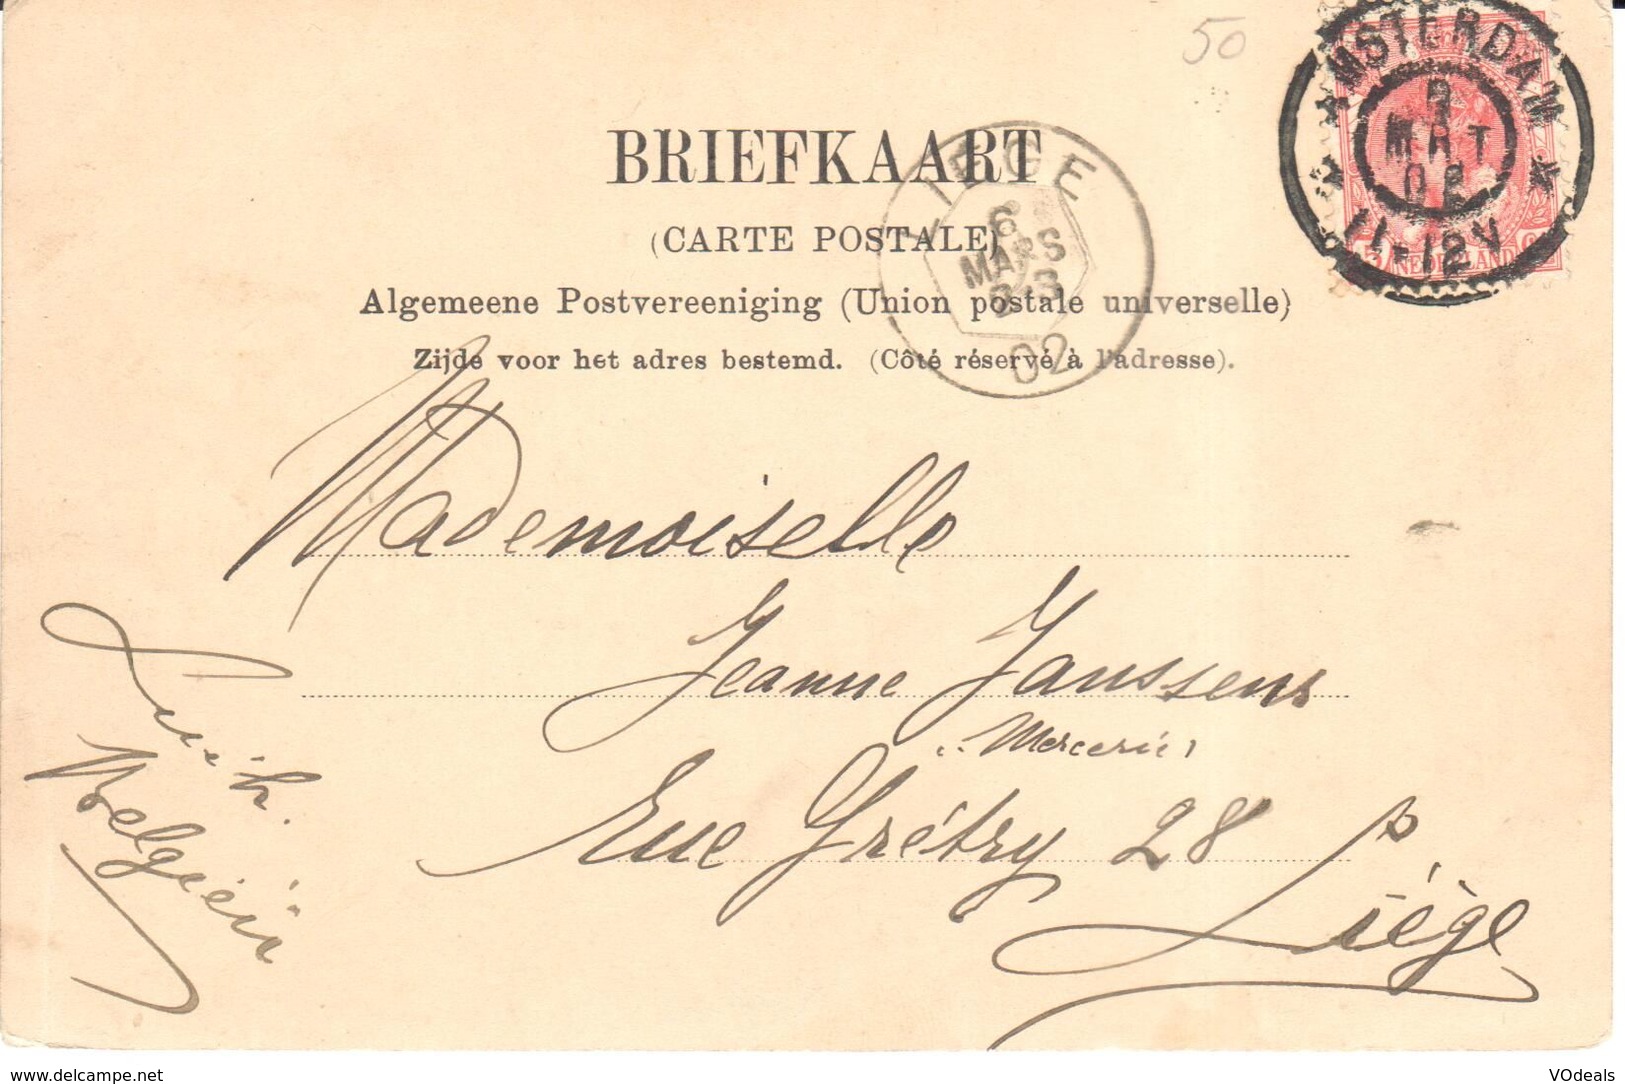 50
AMSTERDAM
MRT
02
11-12V
NEDERLAND
BRIEFKAART
LIEGE
6
MARS
02
(CARTE POSTALE)
Algemeene Postvereeniging (Union postale universelle)
Zijde voor het adres bestemd. (Côté réservé à l'adresse).
Mademoiselle
Jeanne Janssens
Mercerie
Rue Grétry 28
Liége
Luik.
Belgiën
www.delcampe.net
VOdeals